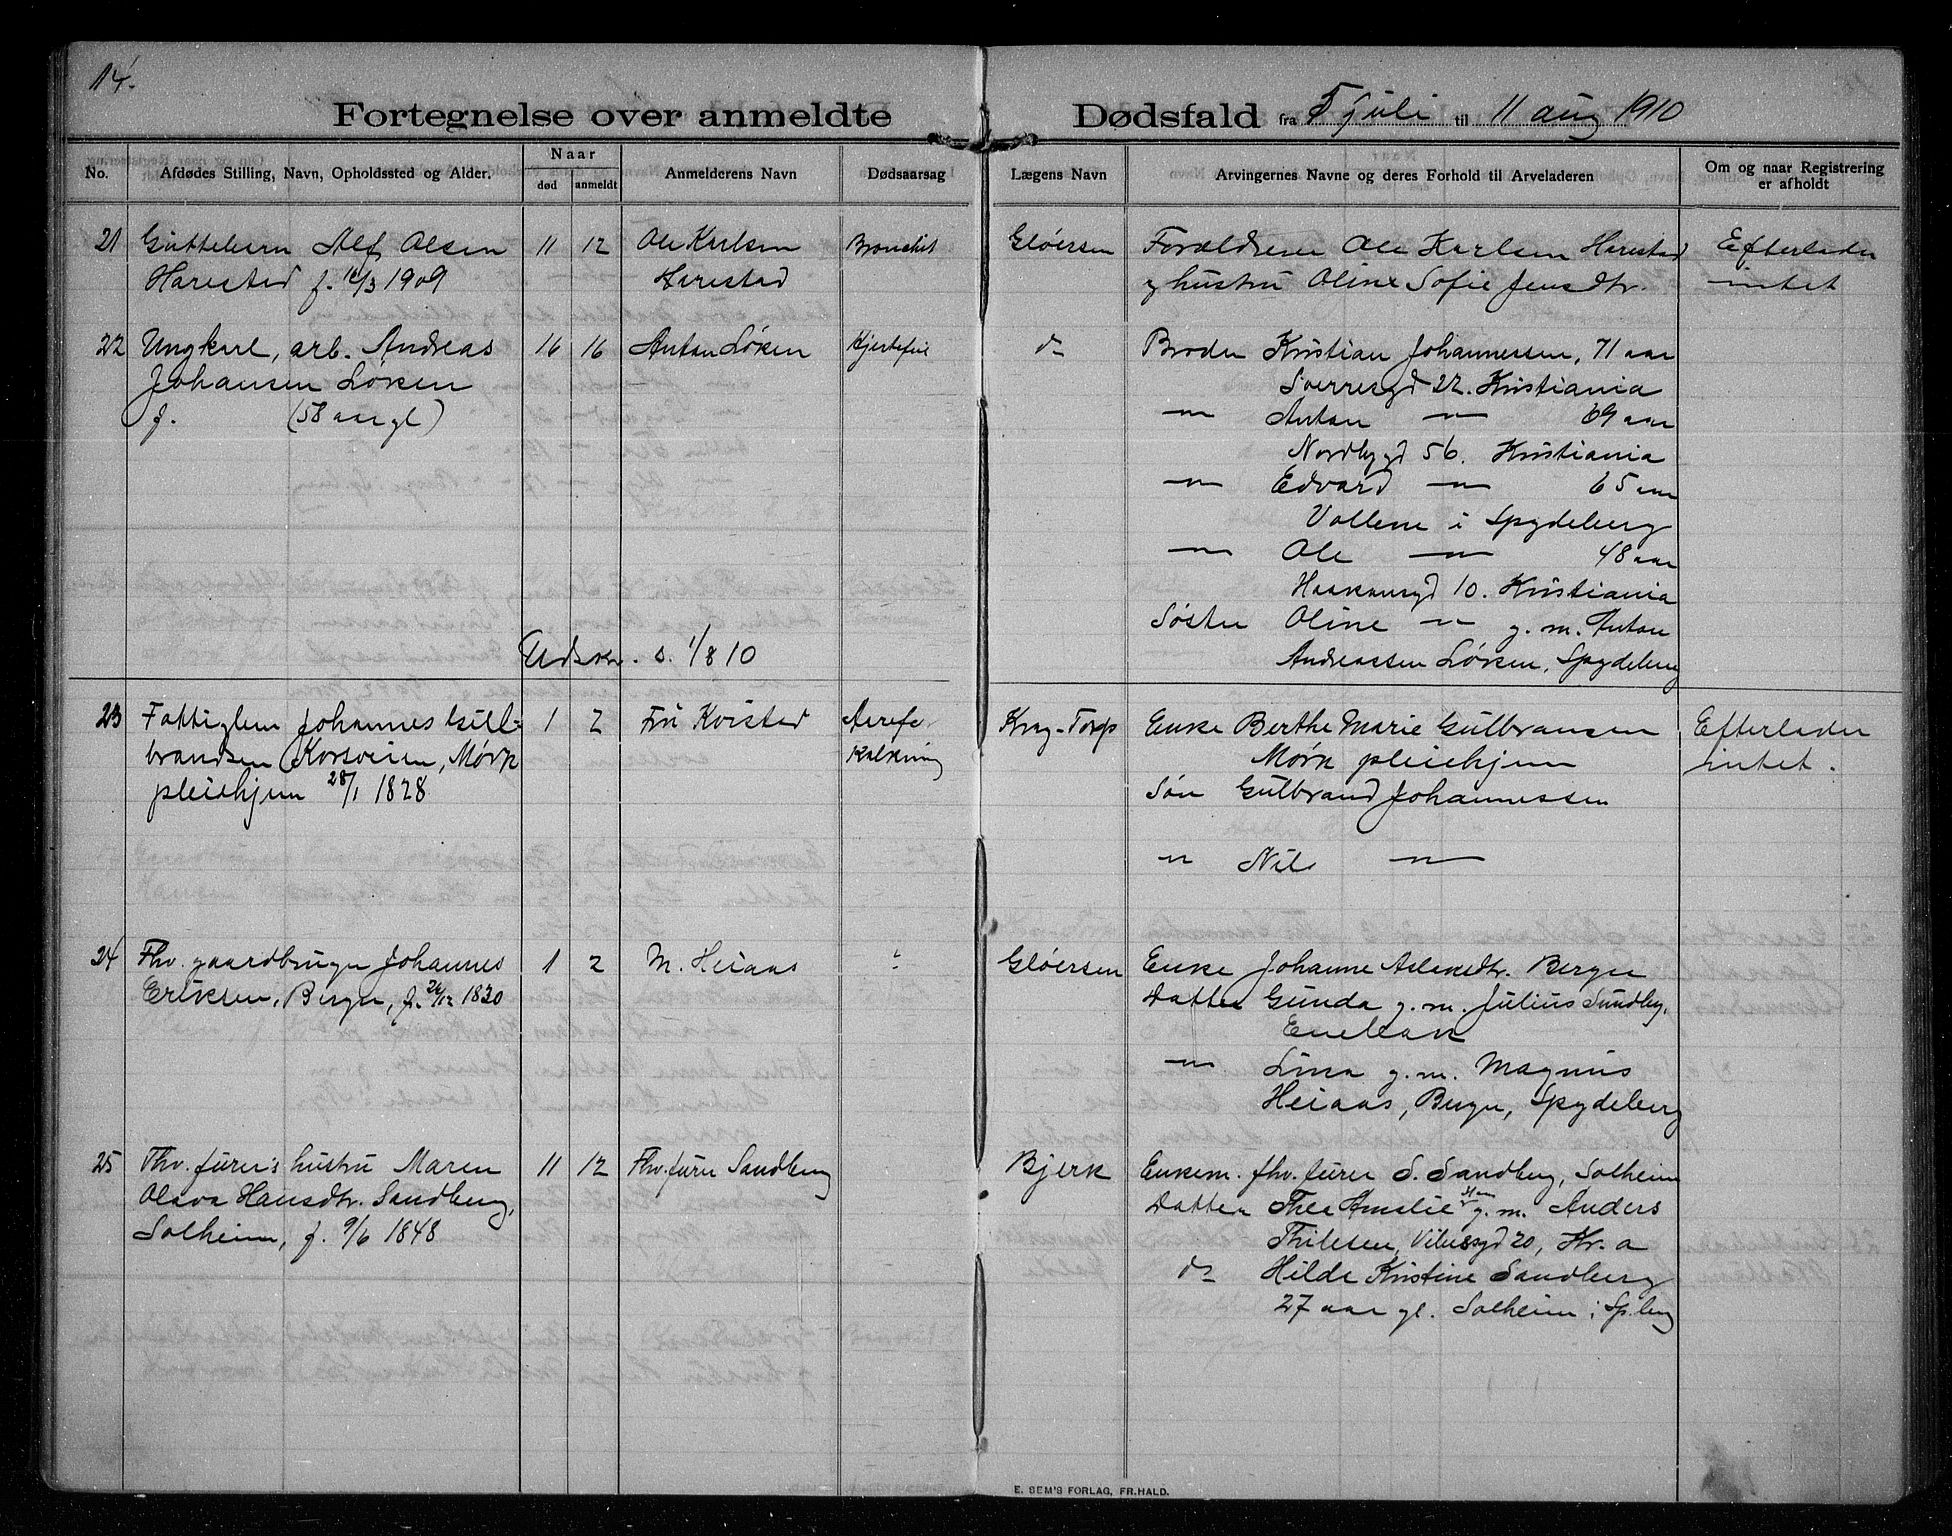 14.
Fortegnelse over anmeldte Dødsfald fra 5 juli til 11 aug 1910
No.
Afdødes Stilling, Navn, Opholdssted og Alder.
Naar
død
anmeldt
Anmelderens Navn
Dødsaarsag
Lægens Navn
Arvingernes Navne og deres Forhold til Arveladeren
Om og naar Registrering
er afholdt
21 Guttebarn Alf Olsen 11 12 Ole Karlsen Bronchit Gløersen Forældrene Ole Karlsen Harestad Efterlader
Harestad f. 16/3 1909 Harestad og hustru Oline Sofie Jensdtr. intet
22 Ungkarl, arb. Andreas 16 16 Anton Løken Hjertefeil do Broder Kristian Johannessen, 71 aar
Johansen Løken Sverresgd 22. Kristiania
f. (58 aar gl) — Anton — 69 aar
Nordbygd 56. Kristiania
— Edvard — 65 aar
Vollene i Spydeberg
— Ole — 48 aar
Haakonsgd 10. Kristiania
Søster Oline — g. m. Anton
Udskr. s. 1/8 10 Andreassen Løken, Spydeberg
23 Fattiglem Johannes Gull- 1 2 Frk Kvistad Aarefor- Krag-Torp Enke Berthe Marie Gulbransen Efterlader
brandsen (Korsveien, Mørk kalkning Mørk pleiehjem intet.
pleiehjem 28/1 1828 Søn Gulbrand Johannessen
" Nils —
24 Fhv. gaardbruger Johannes 1 2 M. Heiaas " Gløersen Enke Johanne Aslaksdtr. Berger
Eriksen, Berger, f. 26/12 1830 Datter Gunda g. m. Julius Sundby,
Enebak
— Lina g. m. Magnus
Heiaas, Berger, Spydeberg
25 Fhv. furer's hustru Maren 11 12 Fhv. furer Sandberg Bjerk Enkem. fhv. furer S. Sandberg, Solheim
Olava Hansdtr. Sandberg, Datter Thea Amalie g. m. Anders
Solheim, f. 9/6 1848 Thilesen, Vibesgd 20, Kr.a
do Hilda Kristine Sandberg
27 aar gl. Solheim i Sp.berg
E. SEM'S FORLAG, FR.HALD.